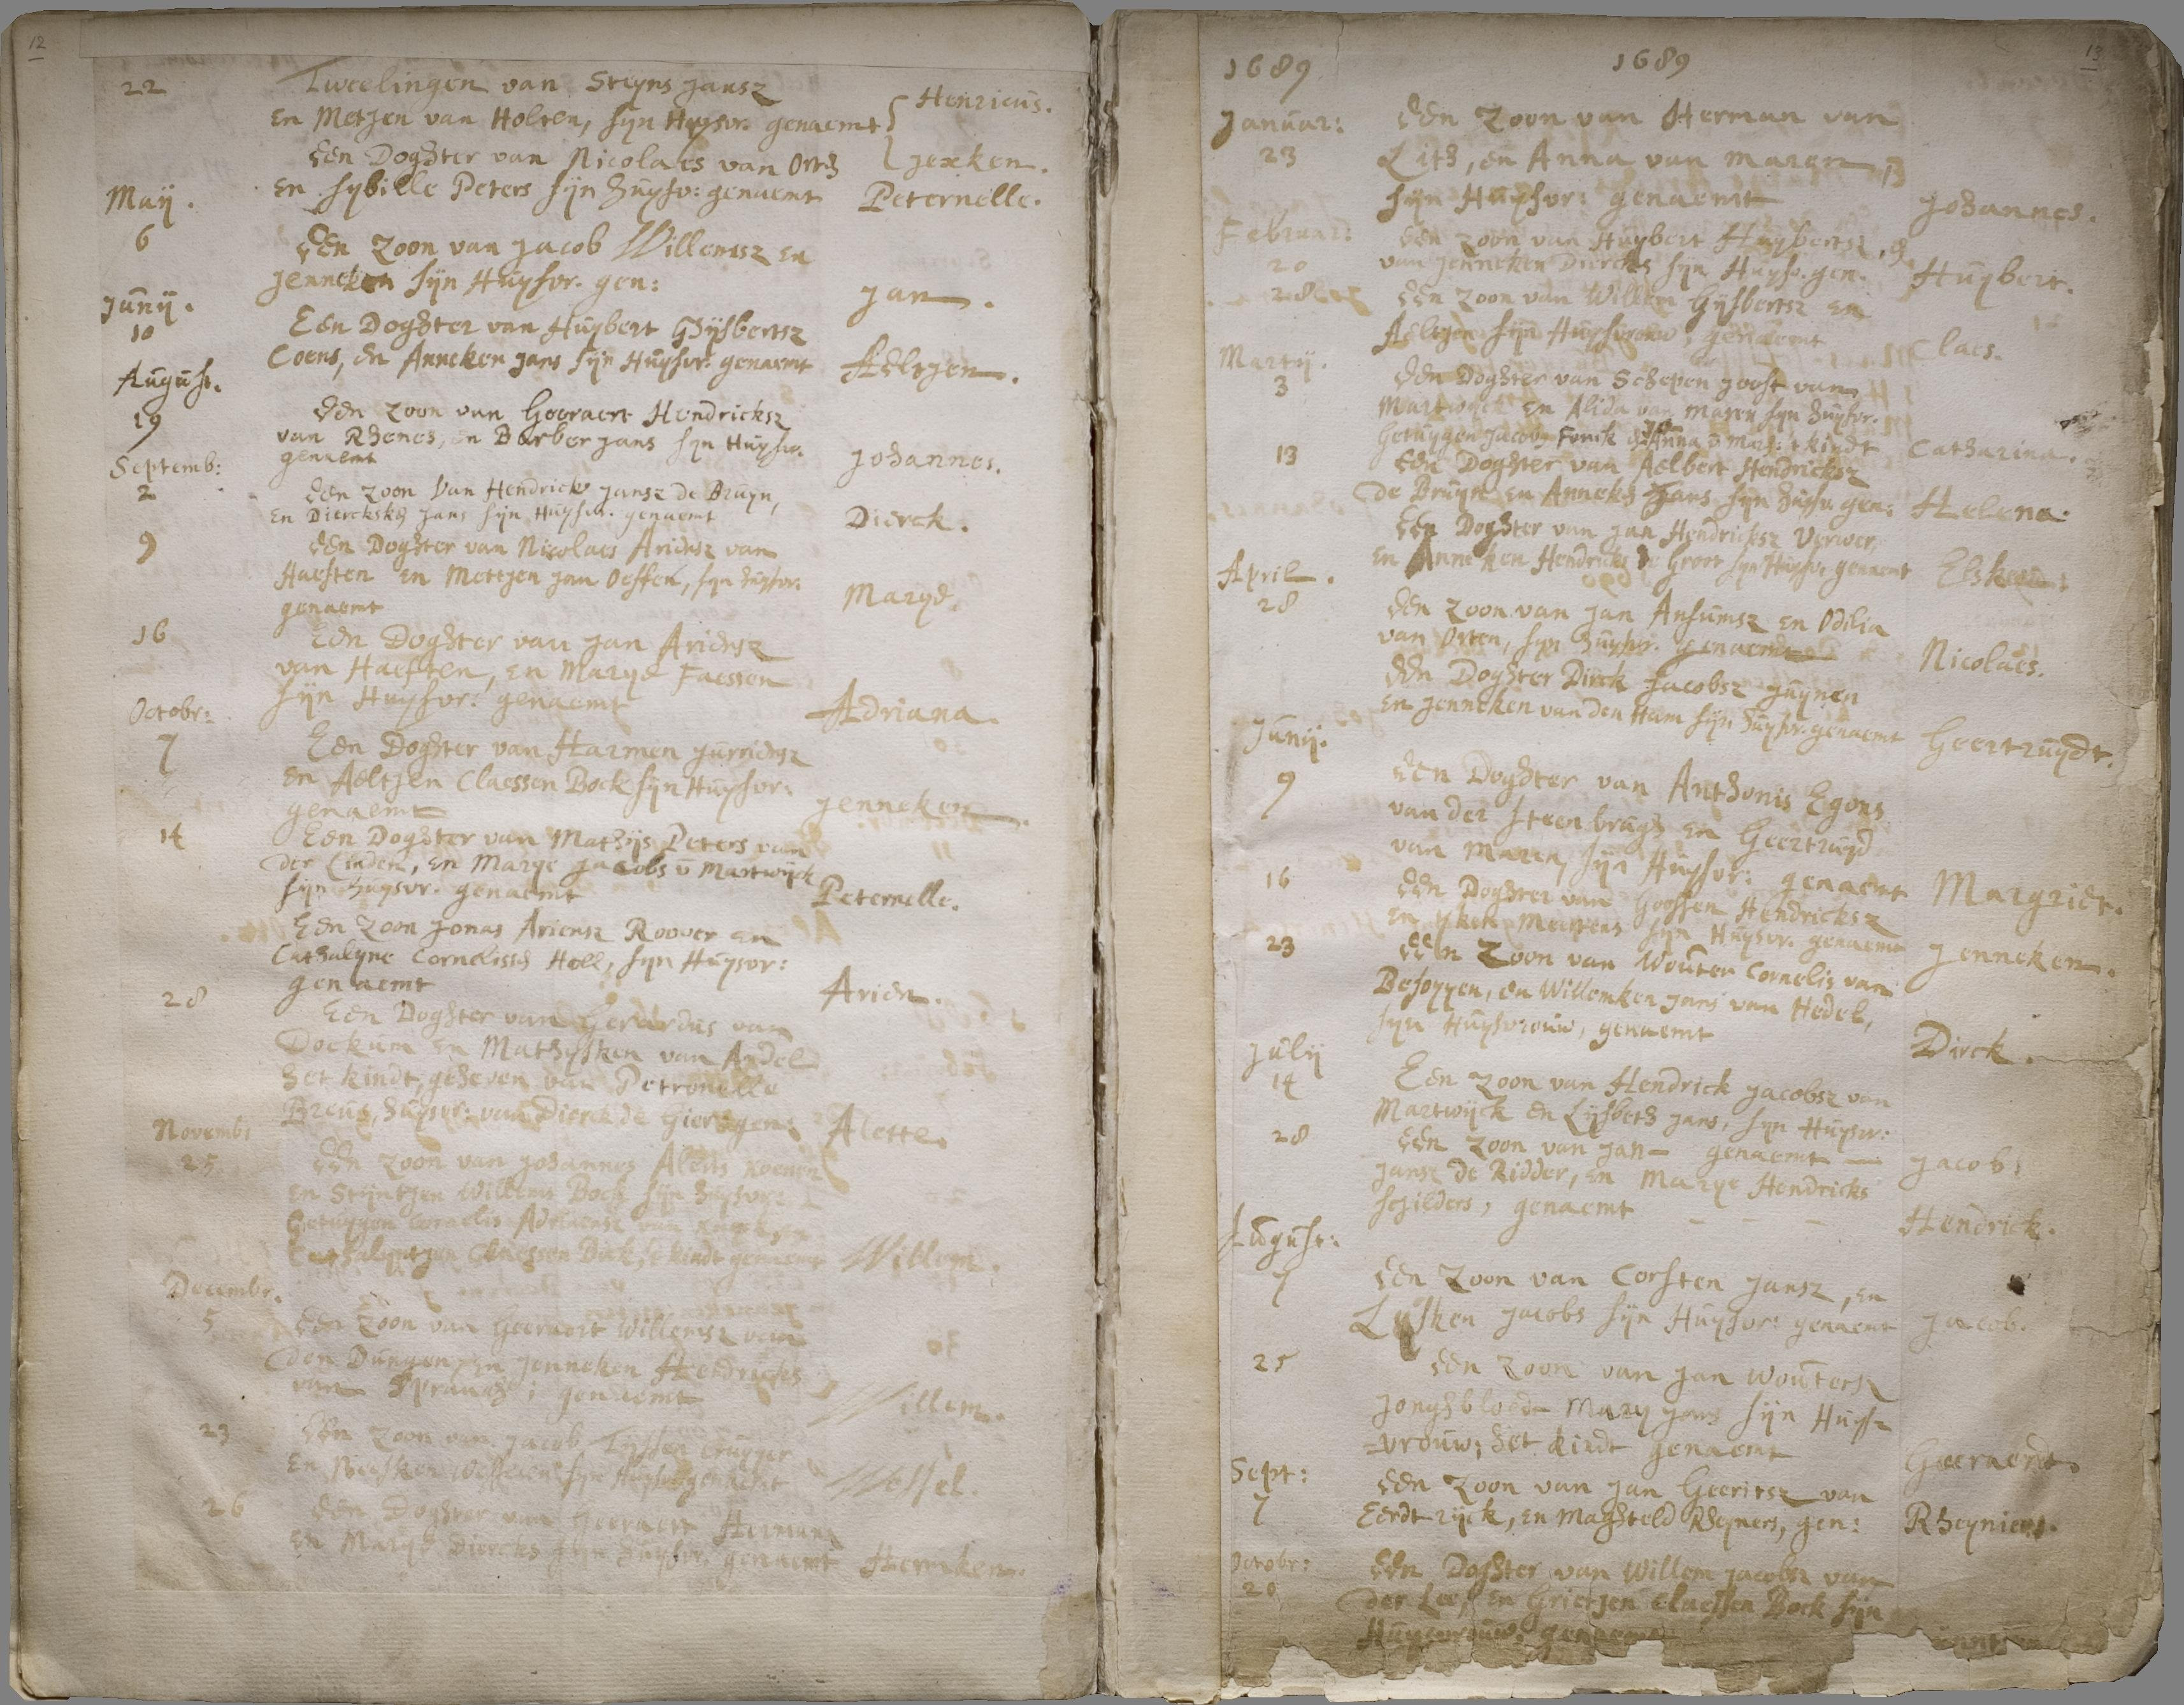 12
22 Tweelingen van Steyns Jansz
en Metjen van Holten, sijn Huysvr. genaemt Henricus.
Een Doghter van Nicolaes van Orth Jexken.
Maij. en Sybille Peters sijn huysv: genaemt Peternelle.
6 Een Zoon van Jacob Willemsz en
Jenneken sijn Huysvr. gen: Jan.
Junij.
10 Een Doghter van Huybert Ghijsbertsz
Coens, en Anneken Jans sijn Huysvr. genaemt Aeltjen.
August.
19 Een Zoon van Geeraert Hendricksz
van Rhenes, en Barber Jans sijn Huysvr.
genaemt Johannes.
Septemb:
2 Een Zoon van Hendrick Jansz de Bruyn,
en Diercksky Jans sijn Huysvr. genaemt Dierck.
9 Een Doghter van Nicolaes Ariensz van
Haeften en Mettjen Jan Oeffen, sijn huysvr:
genaemt Marye.
16 Een Doghter van Jan Ariensz
van Haeften, en Marye Faessen
sijn Huysvr: genaemt Adriana.
Octobr:
7 Een Doghter van Harmen Jurriensz
en Aeltjen Claessen Bock sijn Huysvr:
genaemt Jenneken.
14 Een Doghter van Mathijs Peters van
der Linden, en Marye Jacobs v Martwijck
sijn huysvr. genaemt Peternelle.
Een Zoon Jonas Ariensz Roover en
Cathalyne Cornelissen Holl, sijn Huysvr:
genaemt Arien.
28 Een Doghter van Gerardus van
Dockum en Mathysken van Andel
het kindt, geheven van Petronelle
Breus, huysvr: van Dierck de Gier gen: Alette.
Novemb:
25 Een Zoon van Johannes Aleus
en Stijntjen Willems Bock sijn huysvr:
Getuygen Cornelis Adriaensz van
Cathalyntjen Claessen Bock, 't kindt genaemt Willem.
Decembr.
5 Een Zoon van Geeraert Willemsz van
den Dungen, en Jenneken Hendricks
van Sprangh; genaemt Willem.
23 Een Zoon van Jacob Tyssen
en sijn Huysvr genaemt Wessel.
26 Een Doghter van Geeraert Hermans
en Marye Diercks sijn huysvr. genaemt Hermken.
13
1689 1689
Januar: Een Zoon van Herman van
23 Lith, en Anna van Maren
sijn Huysvr: genaemt Johannes.
Februar: Een Zoon van Huybert Huybertsz, en
20 van Jenneken Diercks sijn Huysv. gen. Huybert.
28 Een Zoon van Willem Gijsbertsz en
Aeltjen sijn Huysvrouw, genaemt Claes.
Martij.
3 Een Doghter van Schepen Joost van
Martwijck en Alida van Maren sijn huysvr.
Getuygen Jacob Fonck en Anna v Mar: t kindt Catharina.
13 Een Doghter van Aelbert Hendricksz
de Bruyn en Anneke Jans sijn huysv. gen: Helena.
Een Doghter van Jan Hendricksz Verwer,
en Anneken Hendricks de Groot sijn Huysvr genaemt Elsken
April.
28 Een Zoon van Jan Ansumsz en Odilia
van Orten, sijn huysvr. genaemt Nicolaes.
Een Doghter Dirck Jacobsz Juynen
en Jenneken van den Ham sijn huysvr. genaemt Geertruydt.
Junij.
9 Een Doghter van Anthonis Egons
van der Steenbrugh en Geertruyd
van Maren sijn Huysvr: genaemt Margriet.
16 Een Doghter van Goossen Hendricksz
en Yken Meertens sijn Huysvr. genaemt Jenneken.
23 Een Zoon van Wouter Cornelis van
Besoyyen, en Willemken Jans van Hedel,
sijn Huysvrouw, genaemt Dirck.
Julij
14 Een Zoon van Hendrick Jacobsz van
Martwijck en Lijsbeth Jans, sijn Huysvr:
28 Een Zoon van Jan — genaemt — Jacob:
Jansz de Ridder, en Marye Hendricks
Schilders, genaemt — — — Hendrick.
August:
7 Een Zoon van Corsten Jansz, en
Lysken Jacobs sijn Huysvr: genaemt Jacob.
25 Een Zoon van Jan Woutersz
Jonghbloed Mary Jans sijn Huys=
=vrouw; het kindt genaemt Geeraerdt.
Sept:
7 Een Zoon van Jan Geeritsz van
Eerdtrijck, en Maghteld Rheyners, gen: Rheynier.
Octobr:
20 Een Doghter van Willem Jacobsz van
der Lee, en Grietjen Claessen Bock sijn
Huysvrouw, genaemt